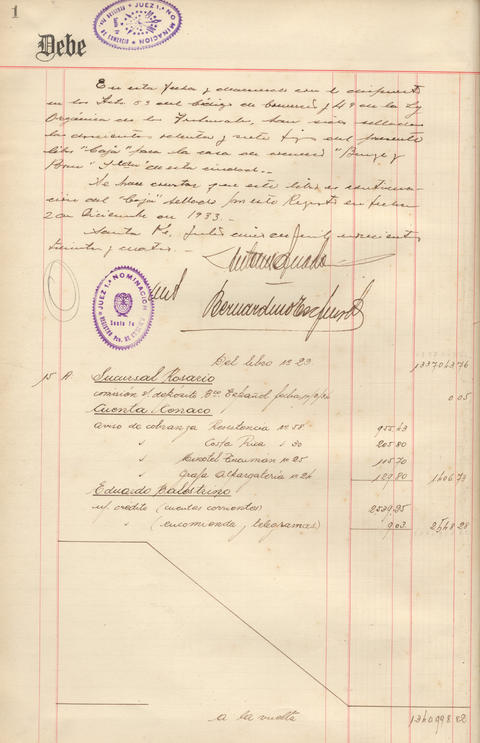 1
JUEZ 1ª NOMINACION
DE REGISTRO DE COMERCIO
Debe
En esta fecha y de acuerdo con lo dispuesto
en los Arts 53 del Código de Comercio y 49 de la Ley
Orgánica de los Tribunales, han sido sellados
los doscientos setenta y siete fojas del presente
libro "Caja" para la casa de comercio "Bunge y
Born" Ltda de esta ciudad.
Se hace constar que este libro es continua-
ción del "Caja" sellado por este Registro en fecha
2 de Diciembre de 1933.
Santa Fe, Julio de mil novecientos
treinta y cuatro.
JUEZ 1ª NOMINACION
Santa Fe
Del libro nº 23 1337043 76
15 A. Sucursal Rosario
comisión s/ depósito Bco Español 0 05
Cuenta Monaco
aviso de cobranza Resistencia nº 58 955.43
" Costa Rica " 30 205 80
" Tucumán nº 25 115 70
" Grafa Alpargatería nº 24 129 80 1406 73
Eduardo Balestrino
n/ crédito (cuentas corrientes) 2539.25
" (encomienda y telegramas) 9.03 2548 28
a la vuelta 1340998 82